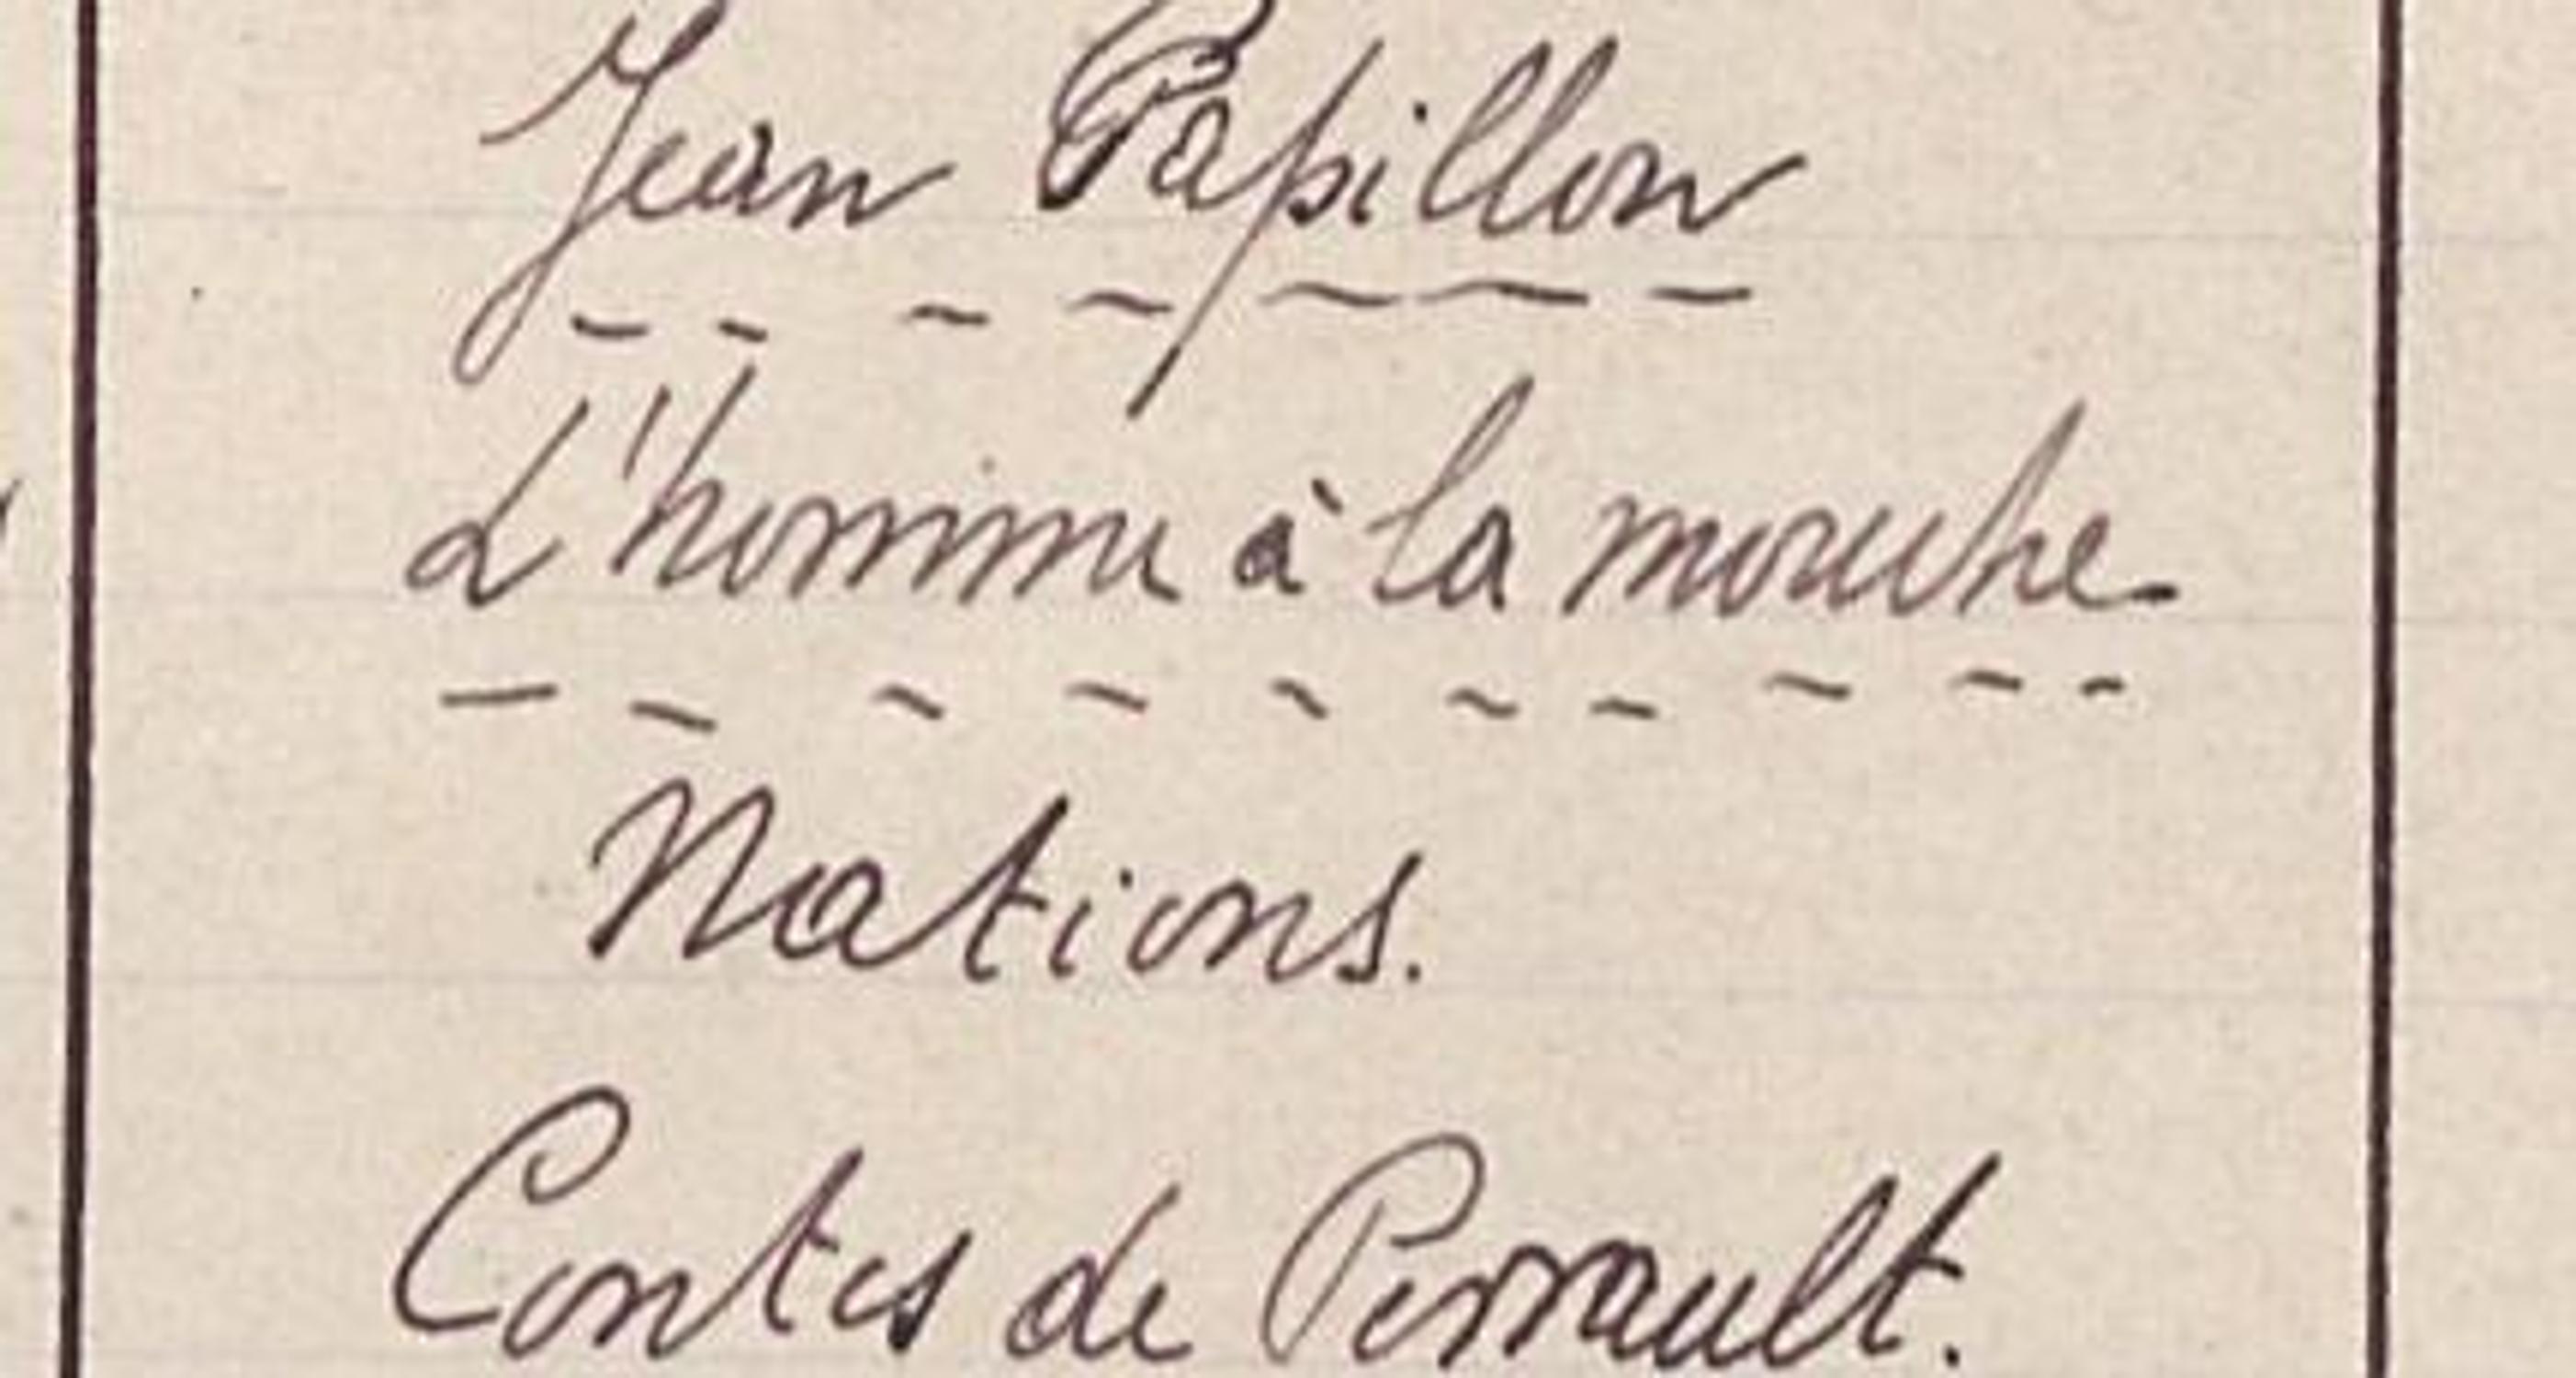 Jean Papillon
L'homme à la mouche
Nations.
Contes de Perrault.